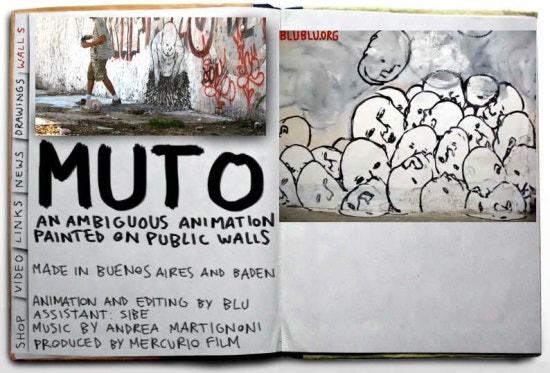 WALLS
DRAWINGS
NEWS
LINKS
VIDEO
SHOP
MUTO
AN AMBIGUOUS ANIMATION
PAINTED ON PUBLIC WALLS
MADE IN BUENOS AIRES AND BADEN
ANIMATION AND EDITING BY BLU
ASSISTANT: SIBE
MUSIC BY ANDREA MARTIGNONI
PRODUCED BY MERCURIO FILM
BLUBLU.ORG